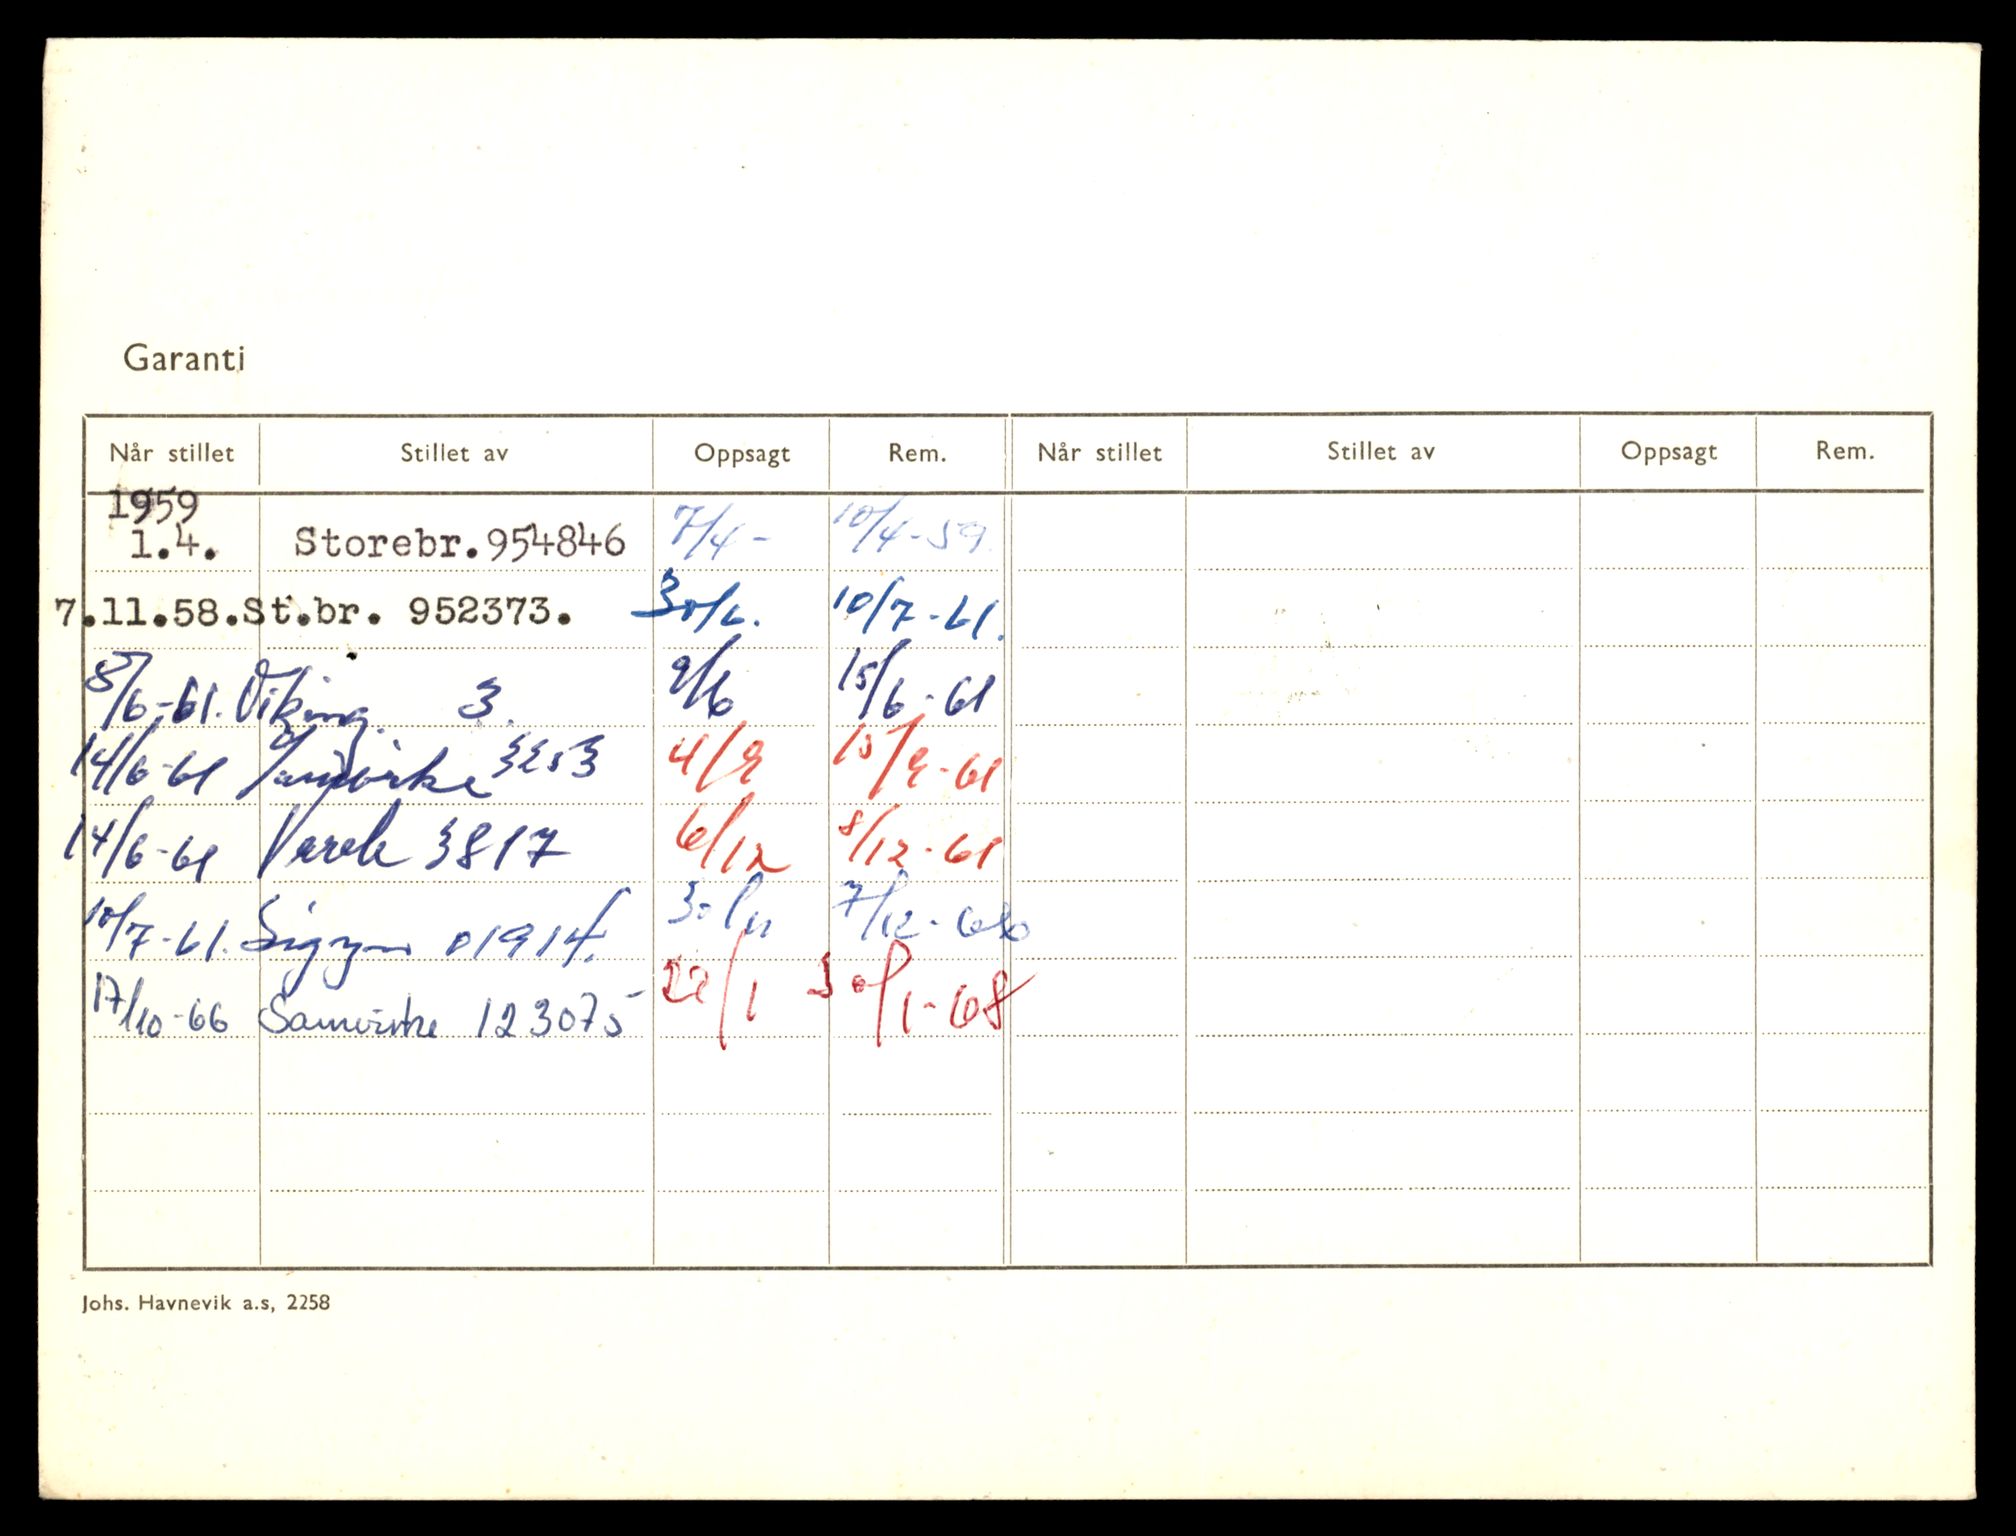 Garanti
Når stillet Stillet av Oppsagt Rem. Når stillet Stillet av Oppsagt Rem.
1959
1.4. Storebr.954846 7/4- 10/4-59.
7.11.58.St.br. 952373. 30/6. 10/7-61.
8/6-61. Viking 3. 9/6 15/6-61
14/6-61 Samvirke 3253 4/9 15/9-61
14/6-61 3817 6/12 8/12-61
10/7-61. Sigyn 01914. 30/11 7/12-66
17/10-66 Samvirke 123075 22/1 30/1-68
Johs. Havnevik a.s, 2258